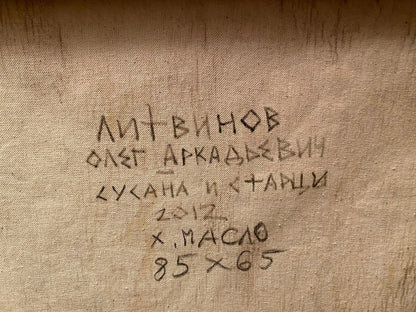 ЛИТВИНОВ
ОЛЕГ АРКАДЬЕВИЧ
СУСАНА И СТАРЦЫ
2012
Х. МАСЛО
85×65